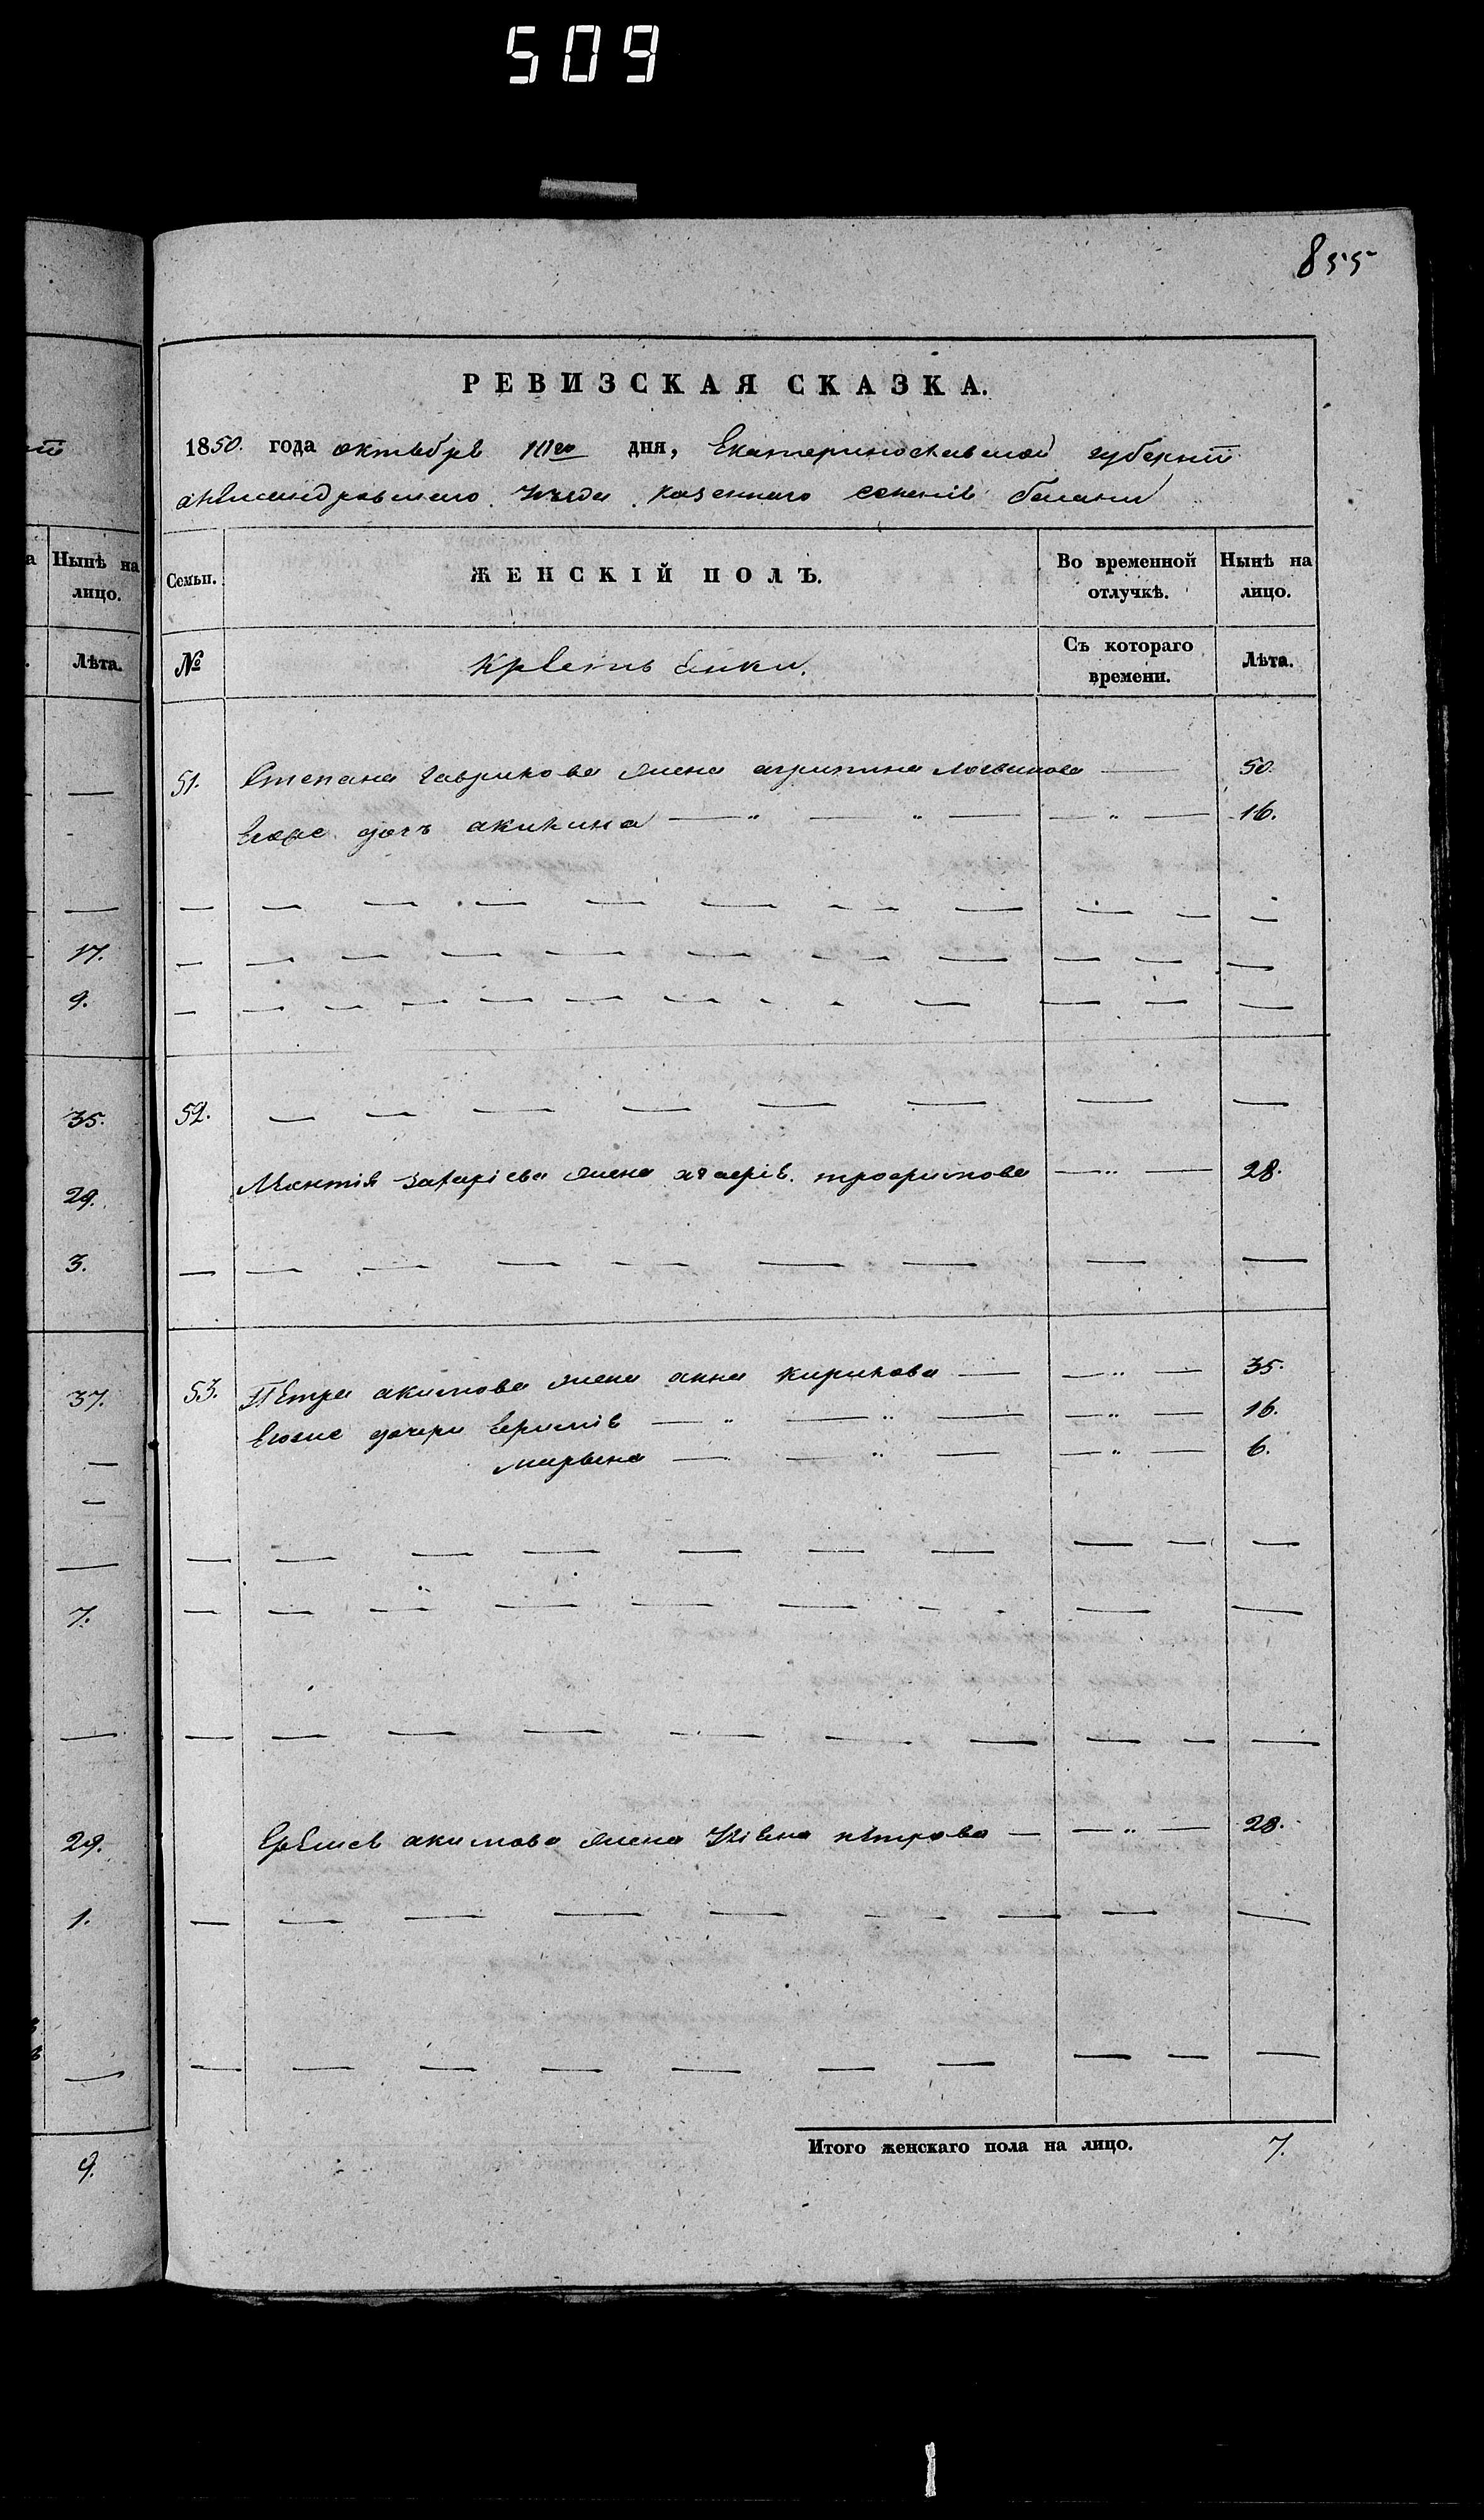 509
855
РЕВИЗСКАЯ СКАЗКА.
1850. года октября дня, Екатеринославской губернии
александровского уезда казенного селения
Нынѣ на лицо.
Семьи.
ЖЕНСКІЙ ПОЛЪ.
Во временной отлучкѣ.
Нынѣ на лицо.
Лѣта.
№
Съ котораго времени.
Лѣта.
51. Степана гаврилова жена агрипина логвинова — 50.
Егоже дочь акилина — " — " — — " — 16.
17.
9.
35.
52.
29.
захаріева жена трофимова — " — 28.
3.
37.
53. Петра акимова жена анна кирилова — — " — 35.
Егоже дочери — " — " — — " — 16.
марьяна — — " — — " — 6.
7.
29.
акимова жена петрова — — " — 28.
1.
Итого женскаго пола на лицо. 7.
9.